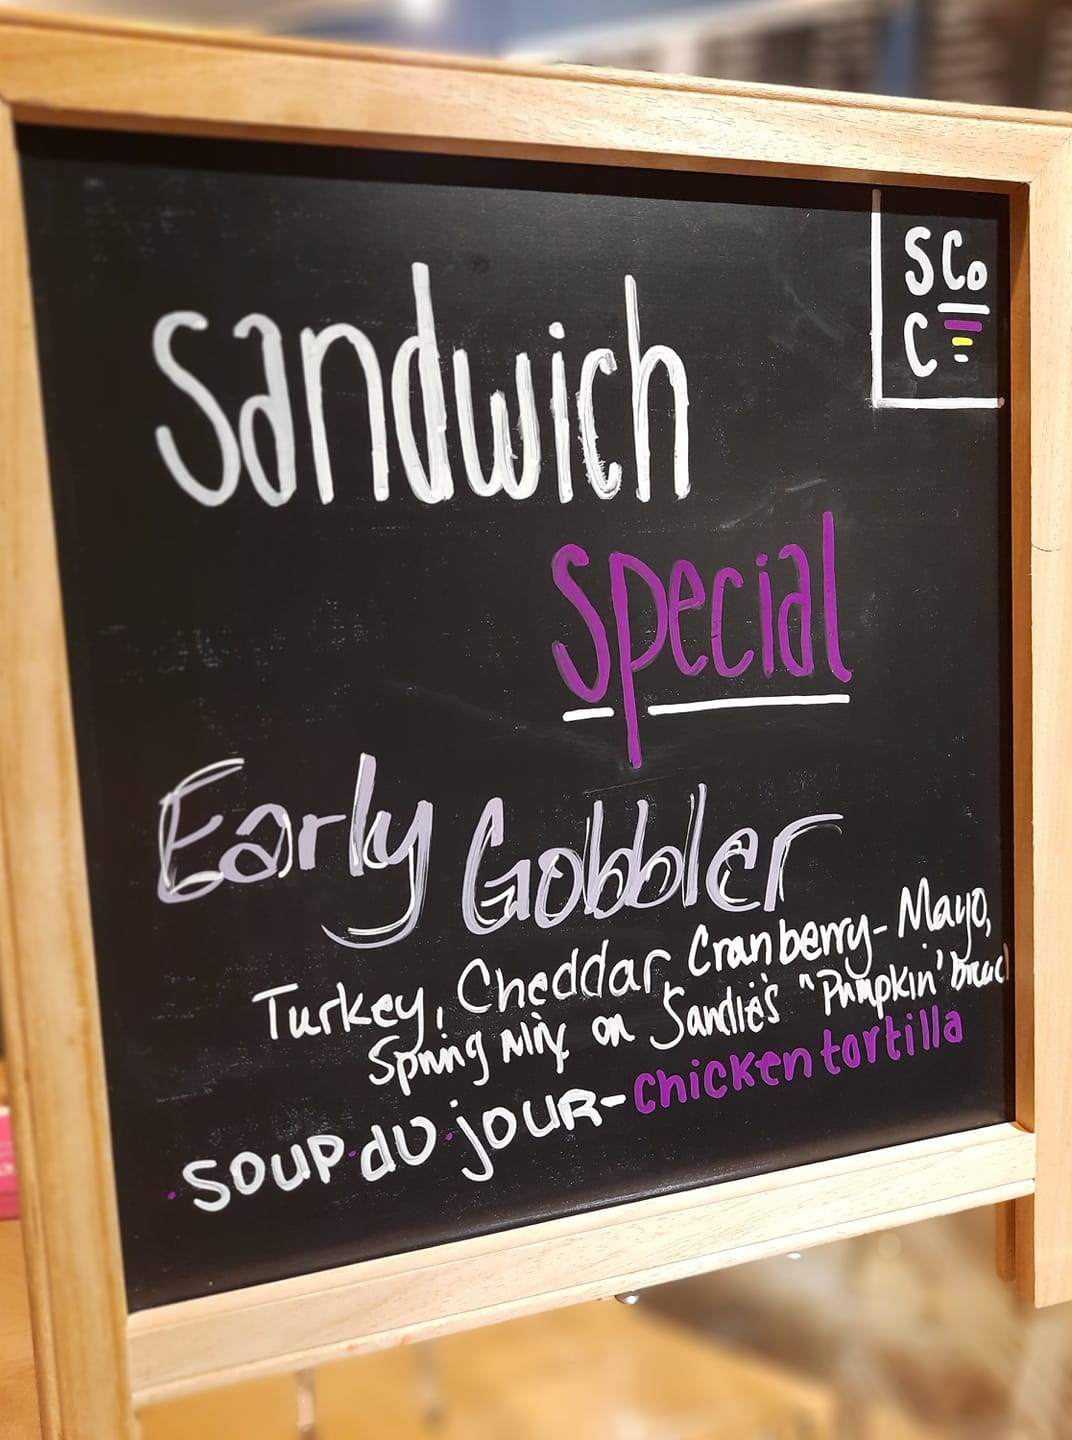 SCo
C
Sandwich
Special
Early Gobbler
Turkey, Cheddar, Cranberry-Mayo,
Spring Mix on Sandie's "Pumpkin' bread
SOUP·dU·joUR-chicken tortilla